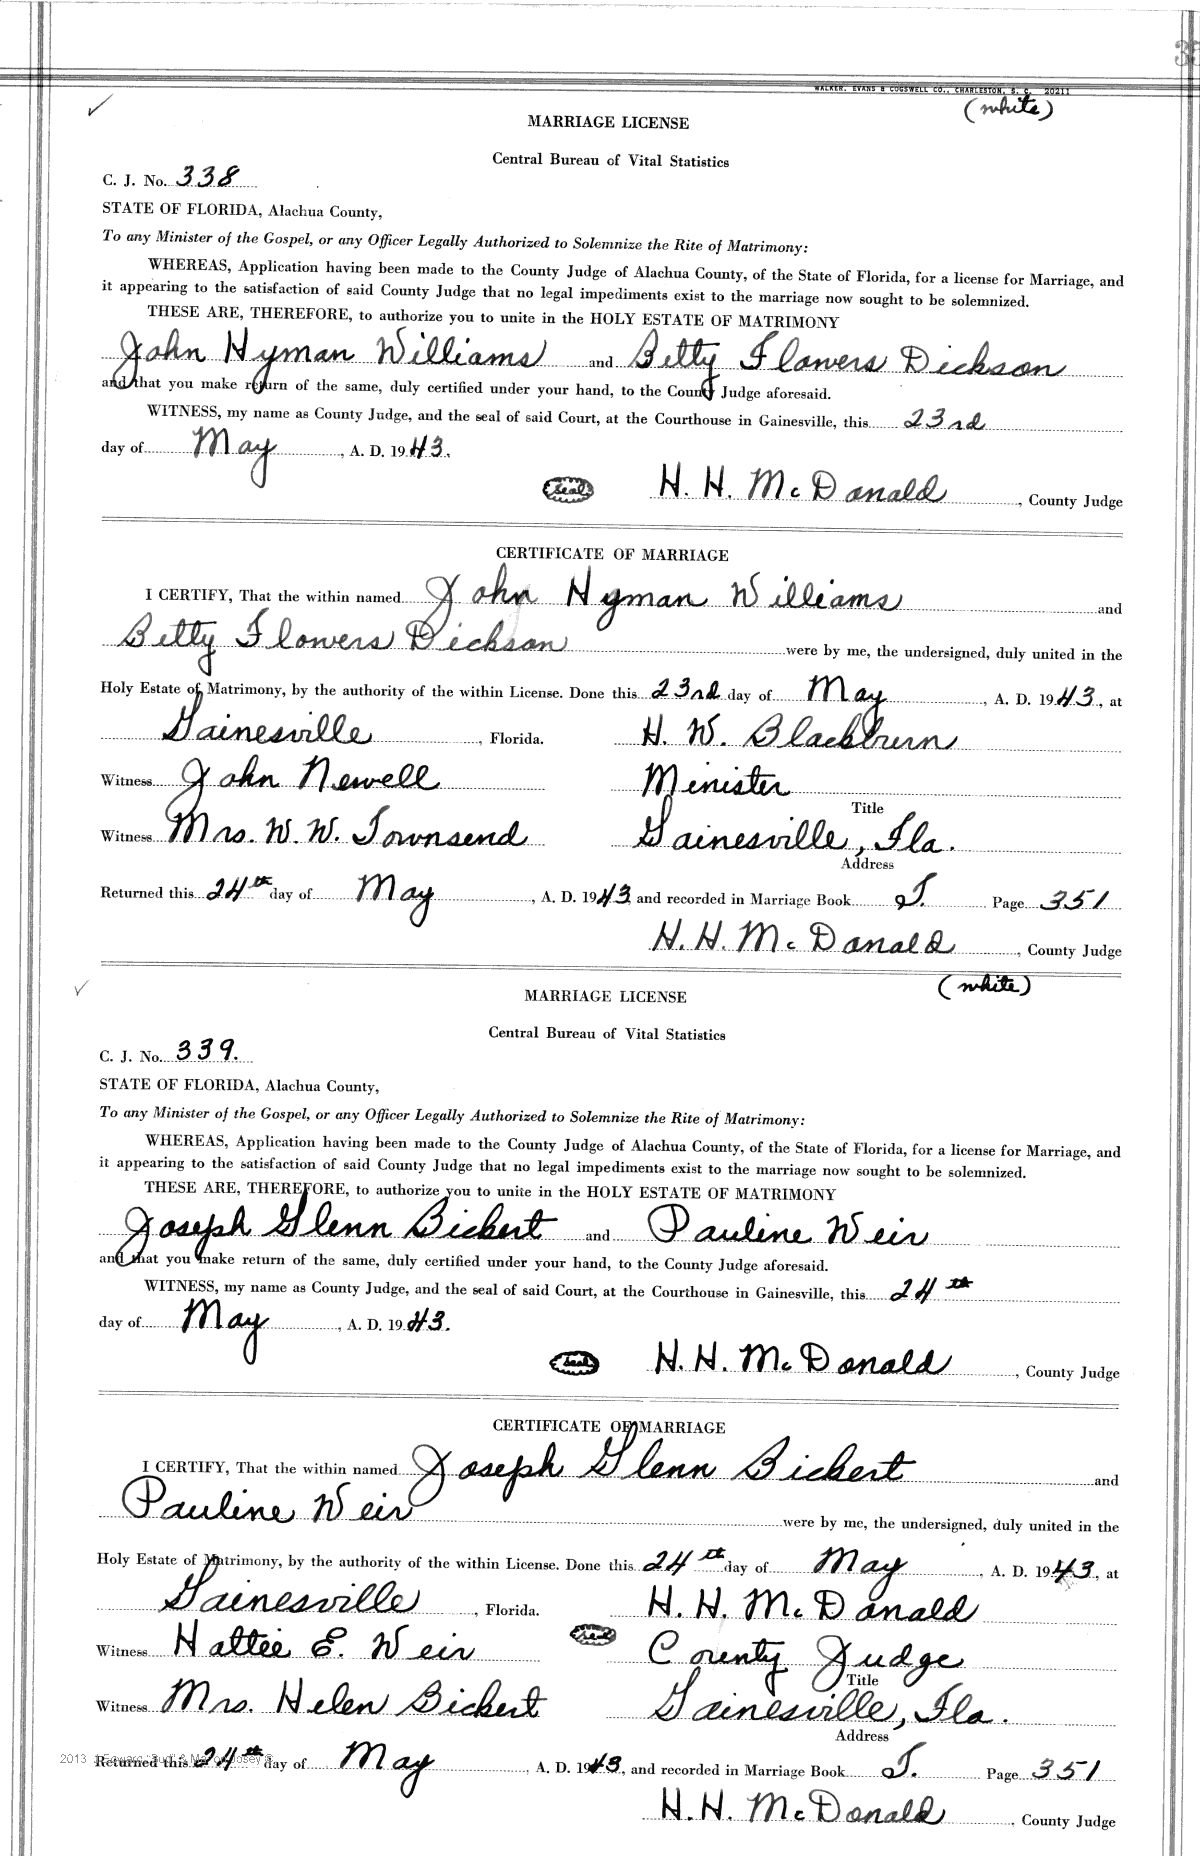 35
WALKER, EVANS & COGSWELL CO., CHARLESTON, S. C. 20211
(white)
MARRIAGE LICENSE
Central Bureau of Vital Statistics
C. J. No. 338
STATE OF FLORIDA, Alachua County,
To any Minister of the Gospel, or any Officer Legally Authorized to Solemnize the Rite of Matrimony:
WHEREAS, Application having been made to the County Judge of Alachua County, of the State of Florida, for a license for Marriage, and
it appearing to the satisfaction of said County Judge that no legal impediments exist to the marriage now sought to be solemnized.
THESE ARE, THEREFORE, to authorize you to unite in the HOLY ESTATE OF MATRIMONY
John Hyman Williams and Betty Flowers Dickson
and that you make return of the same, duly certified under your hand, to the County Judge aforesaid.
WITNESS, my name as County Judge, and the seal of said Court, at the Courthouse in Gainesville, this 23rd
day of May, A. D. 1943.
seal H. H. McDonald, County Judge
CERTIFICATE OF MARRIAGE
I CERTIFY, That the within named John Hyman Williams and
Betty Flowers Dickson were by me, the undersigned, duly united in the
Holy Estate of Matrimony, by the authority of the within License. Done this 23rd day of May, A. D. 1943, at
Gainesville, Florida. H. W. Blackburn
Witness John Newell Minister
Title
Witness Mrs. W. W. Townsend Gainesville, Fla.
Address
Returned this 24th day of May, A. D. 1943 and recorded in Marriage Book T. Page 351
H. H. McDonald, County Judge
(white)
MARRIAGE LICENSE
Central Bureau of Vital Statistics
C. J. No. 339.
STATE OF FLORIDA, Alachua County,
To any Minister of the Gospel, or any Officer Legally Authorized to Solemnize the Rite of Matrimony:
WHEREAS, Application having been made to the County Judge of Alachua County, of the State of Florida, for a license for Marriage, and
it appearing to the satisfaction of said County Judge that no legal impediments exist to the marriage now sought to be solemnized.
THESE ARE, THEREFORE, to authorize you to unite in the HOLY ESTATE OF MATRIMONY
Joseph Glenn Bickert and Pauline Weir
and that you make return of the same, duly certified under your hand, to the County Judge aforesaid.
WITNESS, my name as County Judge, and the seal of said Court, at the Courthouse in Gainesville, this 24th
day of May, A. D. 1943.
seal H. H. McDonald, County Judge
CERTIFICATE OF MARRIAGE
I CERTIFY, That the within named Joseph Glenn Bickert and
Pauline Weir were by me, the undersigned, duly united in the
Holy Estate of Matrimony, by the authority of the within License. Done this 24th day of May, A. D. 1943, at
Gainesville, Florida. H. H. McDonald
Witness Hattie E. Weir seal County Judge
Title
Witness Mrs. Helen Bickert Gainesville, Fla.
Address
2013
Returned this 24th day of May, A. D. 1943, and recorded in Marriage Book T. Page 351
H. H. McDonald, County Judge